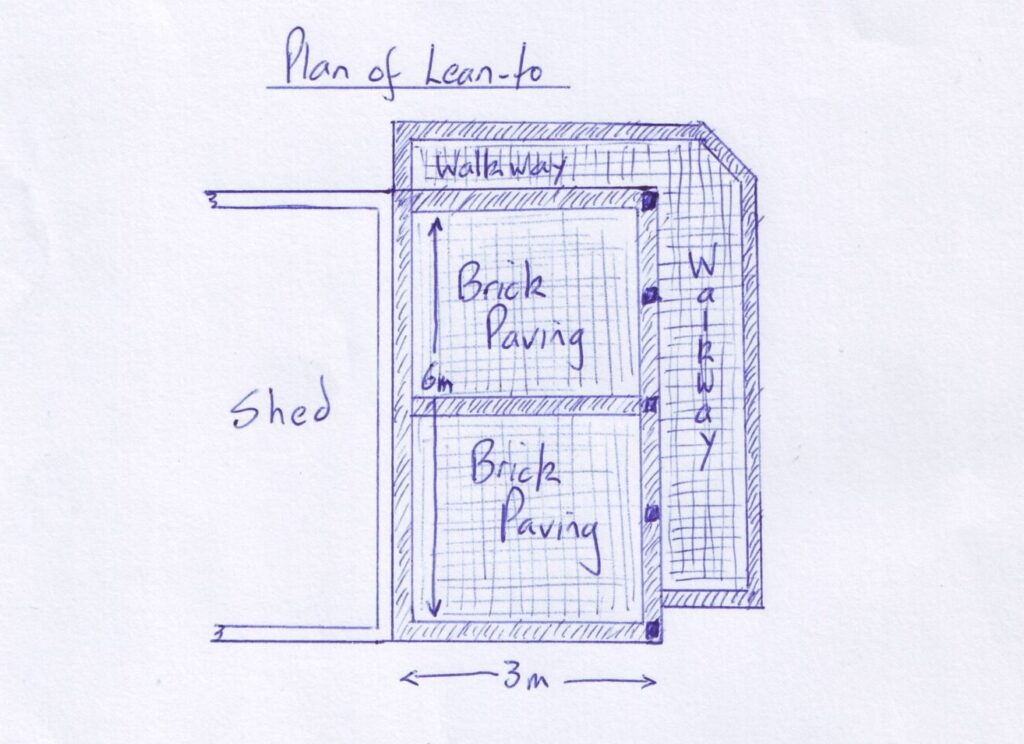 Plan of Lean-to
Walkway
Brick
Paving
Walkway
6m
Shed
Brick
Paving
3m